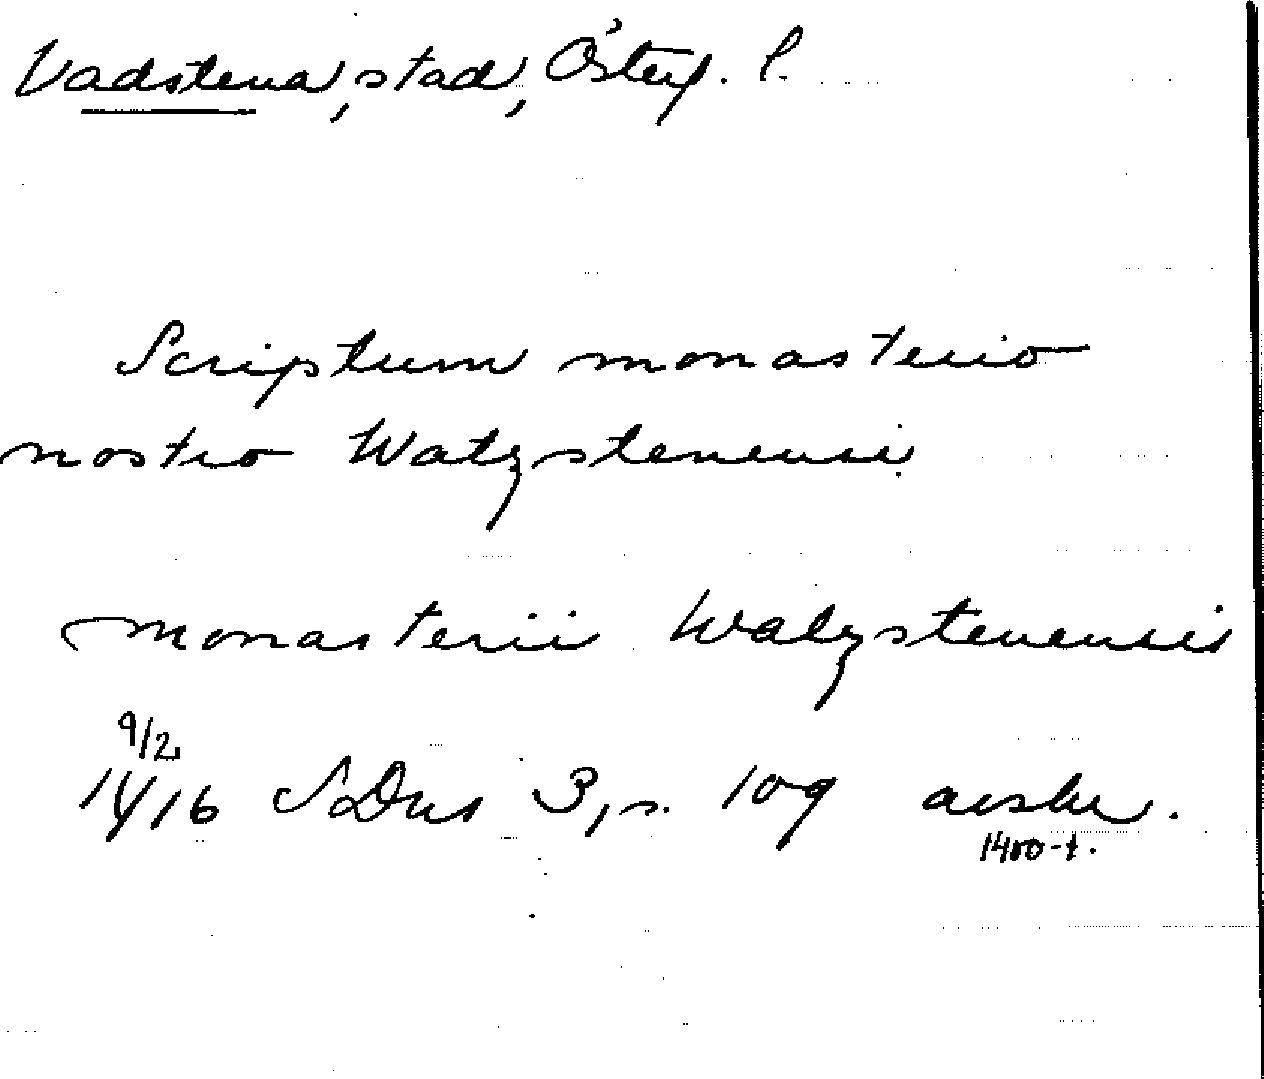 Vadstena, stad, Österg. l.
Scriptum monasterio
nostro Watzstenensi
monasterii Watzstenensis
9/2
1416 SDns 3, s. 109 avskr.
1400-t.